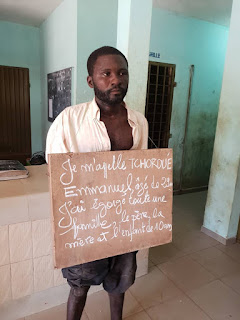 Je m'appelle TCHOROUE
Emmanuel âgé de 22 ans
J'ai égorgé toute une
famille : le père, la
mère et l'enfant de 10 mois